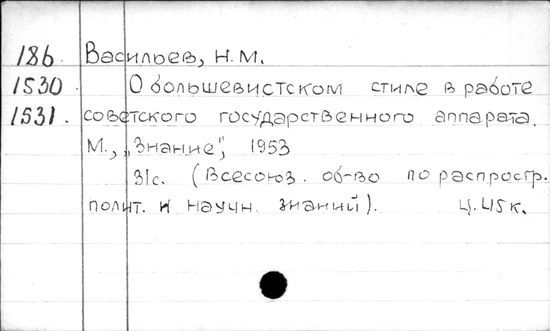 186. Васильев, Н.М.
1530. О большевистском стиле в работе
1531. советского государственного аппарата.
М., „Знание", 1953
31с. (Всесоюз. об-во по распростр.
полит. и научн. знаний). Ц.45к.